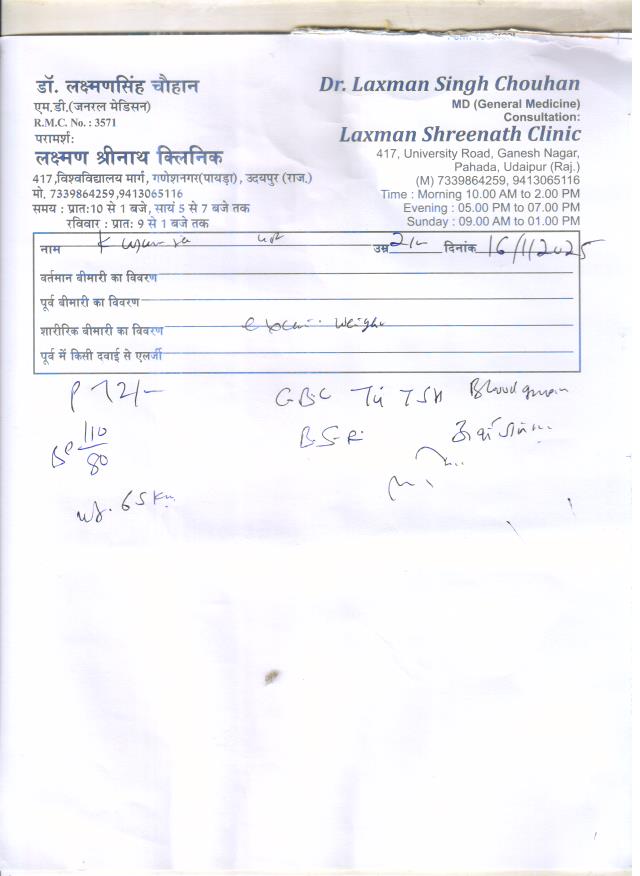 डॉ. लक्ष्मणसिंह चौहान
एम.डी.(जनरल मेडिसन)
R.M.C. No. : 3571
परामर्श:
लक्ष्मण श्रीनाथ क्लिनिक
417,विश्वविद्यालय मार्ग, गणेशनगर(पायड़ा) , उदयपुर (राज.)
मो. 7339864259,9413065116
समय : प्रात:10 से 1 बजे, सायं 5 से 7 बजे तक
रविवार : प्रात: 9 से 1 बजे तक
Dr. Laxman Singh Chouhan
MD (General Medicine)
Consultation:
Laxman Shreenath Clinic
417, University Road, Ganesh Nagar,
Pahada, Udaipur (Raj.)
(M) 7339864259, 9413065116
Time : Morning 10.00 AM to 2.00 PM
Evening : 05.00 PM to 07.00 PM
Sunday : 09.00 AM to 01.00 PM
नाम उम्र दिनांक 16/1/2025
वर्तमान बीमारी का विवरण
पूर्व बीमारी का विवरण
शारीरिक बीमारी का विवरण weight
पूर्व में किसी दवाई से एलर्जी
P 72/- CBC TSH Blood
BP 110/80
wt. 65 Kg